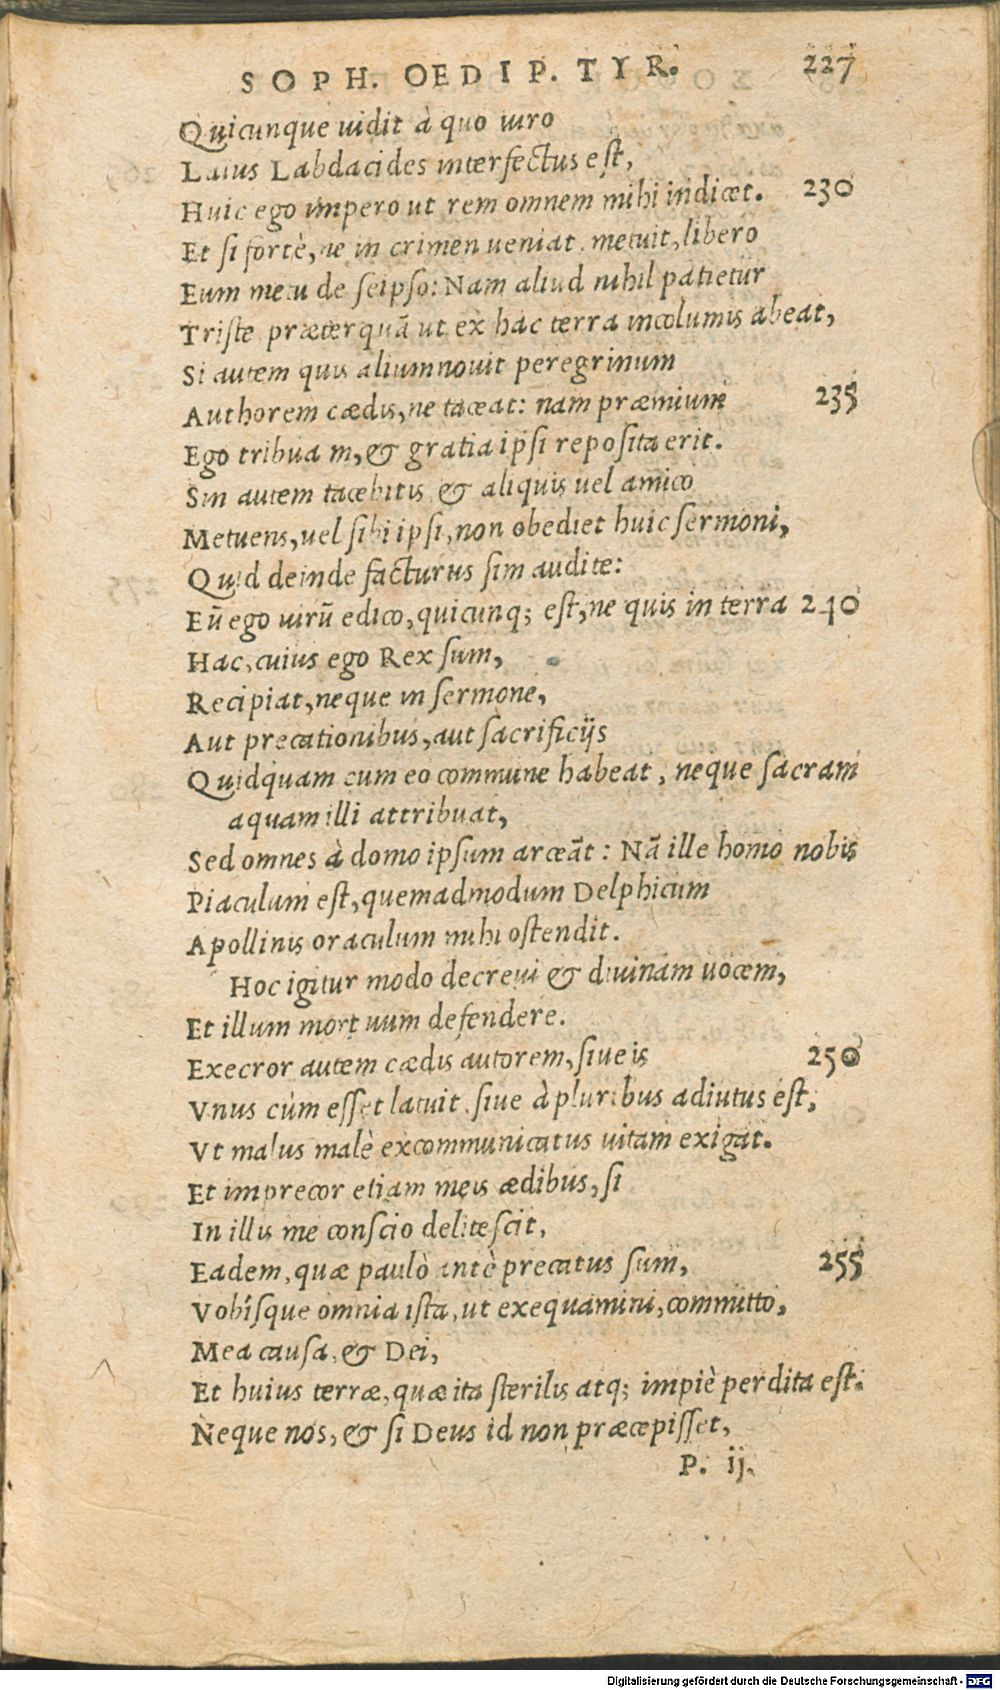 SOPH. OEDIP. TYR. 227
Quicunque uidit à quo uiro
Laius Labdacides interfectus est,
Huic ego impero ut rem omnem mihi indicet. 230
Et si fortè, ne in crimen ueniat, metuit, libero
Eum metu de seipso: Nam aliud nihil patietur
Triste præterquā ut ex hac terra incolumis abeat,
Si autem quis alium nouit peregrinum
Authorem cædis, ne taceat: nam præmium 235
Ego tribuam, & gratia ipsi reposita erit.
Sin autem tacebitis & aliquis uel amico
Metuens, uel sibi ipsi, non obediet huic sermoni,
Quid deinde facturus sim audite:
Eū ego uirū edico, quicunq; est, ne quis in terra 240
Hac, cuius ego Rex sum,
Recipiat, neque in sermone,
Aut precationibus, aut sacrificijs
Quidquam cum eo commune habeat, neque sacram
aquam illi attribuat,
Sed omnes à domo ipsum arceāt: Nā ille homo nobis
Piaculum est, quemadmodum Delphicum
Apollinis oraculum mihi ostendit.
Hoc igitur modo decreui & diuinam uocem,
Et illum mortuum defendere.
Execror autem cædis autorem, siue is 250
Vnus cùm esset latuit, siue à pluribus adiutus est,
Vt malus malè excommunicatus uitam exigat.
Et imprecor etiam meis ædibus, si
In illis me conscio delitescit,
Eadem, quæ paulò antè precatus sum, 255
Vobîsque omnia ista, ut exequamini, committo,
Mea causa, & Dei,
Et huius terræ, quæ ita sterilis atq; impiè perdita est.
Neque nos, & si Deus id non præcepisset,
P. ij.
Digitalisierung gefördert durch die Deutsche Forschungsgemeinschaft - DFG